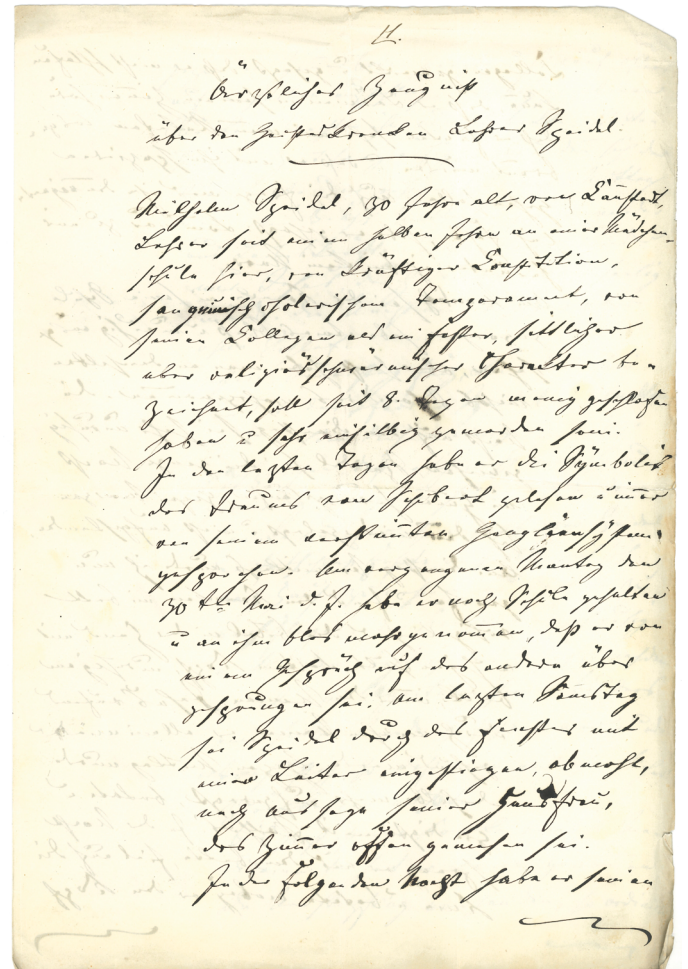 11.
Ärztliches Zeugniß
über den Geisteskranken Lehrer Speidel.
Wilhelm Speidel, 30 Jahre alt, von Cannstadt,
Lehrer seit einem halben Jahre an einer Mädchen-
schule hier, von kräftiger Constitution,
sanguinisch cholerischem Temperament, von
seinen Collegen als ein fester, sittlicher
aber religiösschwärmerischer Charakter be-
zeichnet, soll seit 8 Tagen wenig geschlafen
haben u sehr einsilbig geworden sein.
In den lezten Tagen habe er die Symbolik
des Traums von Schubert gelesen u immer
von seinem verstimmten Gangliensystem
gesprochen. Am vergangenen Montag den
30ten Mai d. J. habe er noch Schule gehalten
u an ihm blos wahrgenommen, daß er von
einem Gespräch auf das andere über
gesprungen sei. Am lezten Samstag
sei Speidel durch das Fenster mit
einer Leiter eingestiegen, obwohl,
nach Aussage seiner Hausfrau,
das Zimmer offen gewesen sei.
In der folgenden Nacht habe er seinen